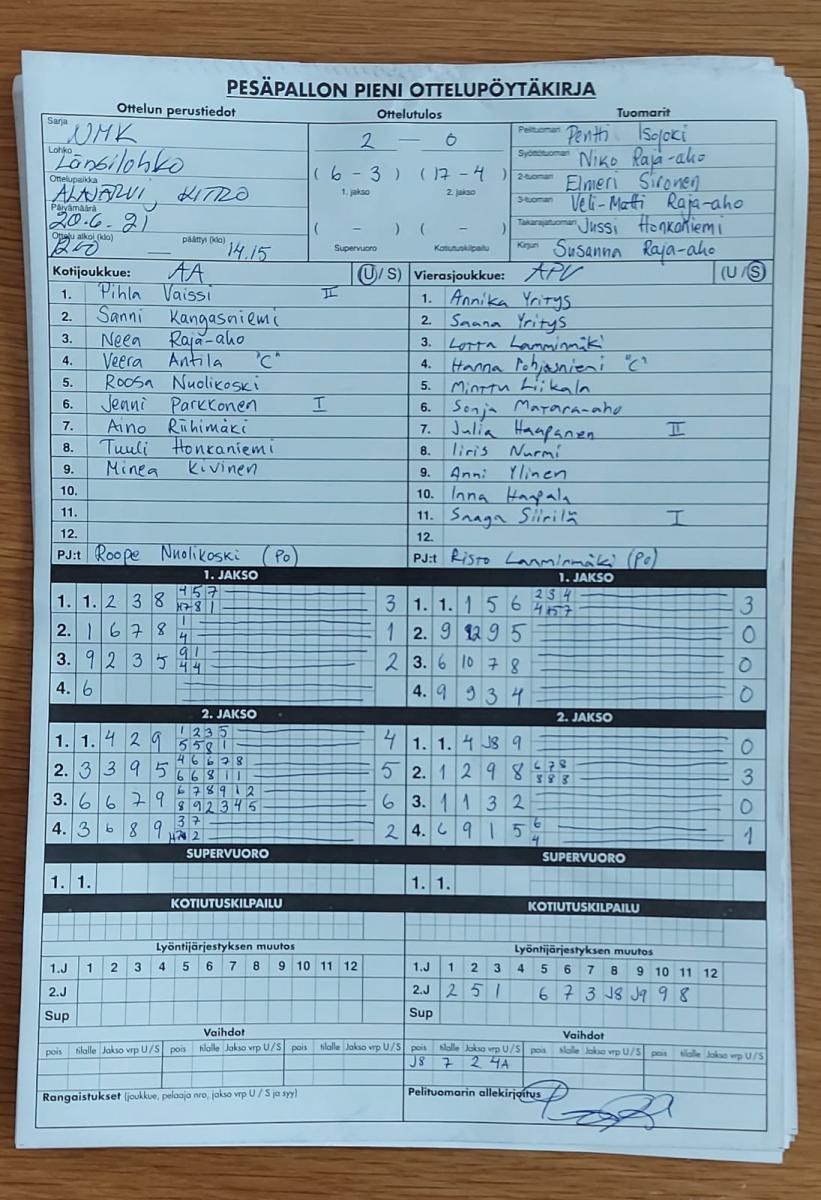 PESÄPALLON PIENI OTTELUPÖYTÄKIRJA
Ottelun perustiedot Ottelutulos Tuomarit
Sarja NMK
Lohko Länsilohko
Ottelupaikka ALAJÄRVI, KITRO
Päivämäärä 20.6.21
Ottelu alkoi (klo) — päättyi (klo) 14.15
2 — 0
(6 – 3) (17 – 4)
1. jakso 2. jakso
( – ) ( – )
Supervuoro Kotiutuskilpailu
Pelituomari Pentti Isojoki
Syöttötuomari Niko Raja-aho
2-tuomari Elmeri Sironen
3-tuomari Veli-Matti Raja-aho
Takarajatuomari Jussi Honkaniemi
Kirjuri Susanna Raja-aho
Kotijoukkue: AA (U/S)
1. Pihla Vaissi II
2. Sanni Kangasniemi
3. Neea Raja-aho
4. Veera Antila "C"
5. Roosa Nuolikoski
6. Jenni Parkkonen I
7. Aino Riihimäki
8. Tuuli Honkaniemi
9. Minea Kivinen
10.
11.
12.
PJ:t Roope Nuolikoski (Po)
Vierasjoukkue: APV (U/S)
1. Annika Yritys
2. Saana Yritys
3. Lotta Lamminmäki
4. Hanna Pohjasniemi "C"
5. Minttu Liikala
6. Sonja Matara-aho
7. Julia Haapanen II
8. Iiris Nurmi
9. Anni Ylinen
10. Inna Haapala
11. Saaga Siirilä I
12.
PJ:t Risto Lamminmäki (Po)
1. JAKSO
1. 1. 2 3 8 4 5 7 3
H7 8 1
2. 1 6 7 8 1 1
4
3. 9 2 3 5 9 1 2
4 4
4. 6
2. JAKSO
1. 1. 4 2 9 1 2 3 5 4
5 5 8 1
2. 3 3 9 5 4 6 6 7 8 5
6 6 8 1 1
3. 6 6 7 9 6 7 8 9 1 2 6
8 9 2 3 4 5
4. 3 6 8 9 3 7 2
2
SUPERVUORO
1. 1.
KOTIUTUSKILPAILU
Lyöntijärjestyksen muutos
1.J 1 2 3 4 5 6 7 8 9 10 11 12
2.J
Sup
Vaihdot
pois tilalle Jakso vrp U/S pois tilalle Jakso vrp U/S pois tilalle Jakso vrp U/S
Rangaistukset (joukkue, pelaaja nro, jakso vrp U / S ja syy)
1. JAKSO
1. 1. 1 5 6 2 3 4 3
4 5 7
2. 9 9 5 0
3. 6 10 7 8 0
4. 9 9 3 4 0
2. JAKSO
1. 1. 4 J8 9 0
2. 1 2 9 8 6 7 8 3
8 8 8
3. 1 1 3 2 0
4. 6 9 1 5 6 1
4
SUPERVUORO
1. 1.
KOTIUTUSKILPAILU
Lyöntijärjestyksen muutos
1.J 1 2 3 4 5 6 7 8 9 10 11 12
2.J 2 5 1 6 7 3 J8 J9 9 8
Sup
Vaihdot
pois tilalle Jakso vrp U/S pois tilalle Jakso vrp U/S pois tilalle Jakso vrp U/S
J8 7 2 4A
Pelituomarin allekirjoitus